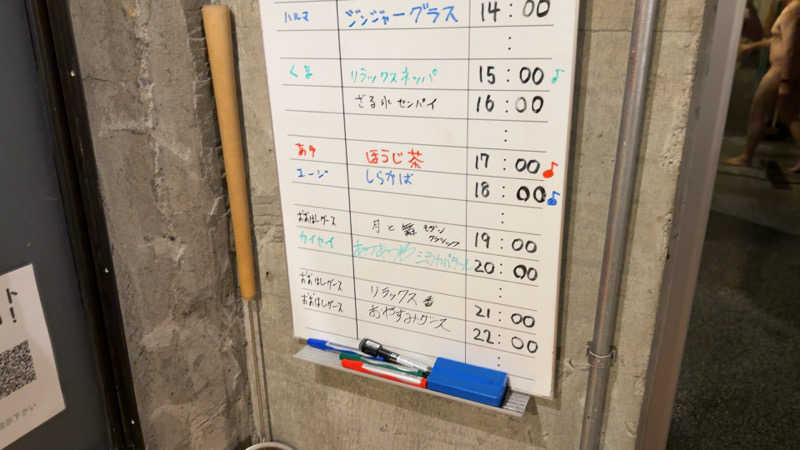 ハルマ ジンジャーグラス 14:00
:
くま リラックスネッパ 15:00
ざる水センパイ 16:00
:
ほうじ茶 17:00
ユージ しらかば 18:00
:
おおはしダース 月と モダン クラシック 19:00
カイセイ 20:00
:
おおはしダース リラックス 21:00
おおはしダース おやすみダース 22:00
:
ト
!